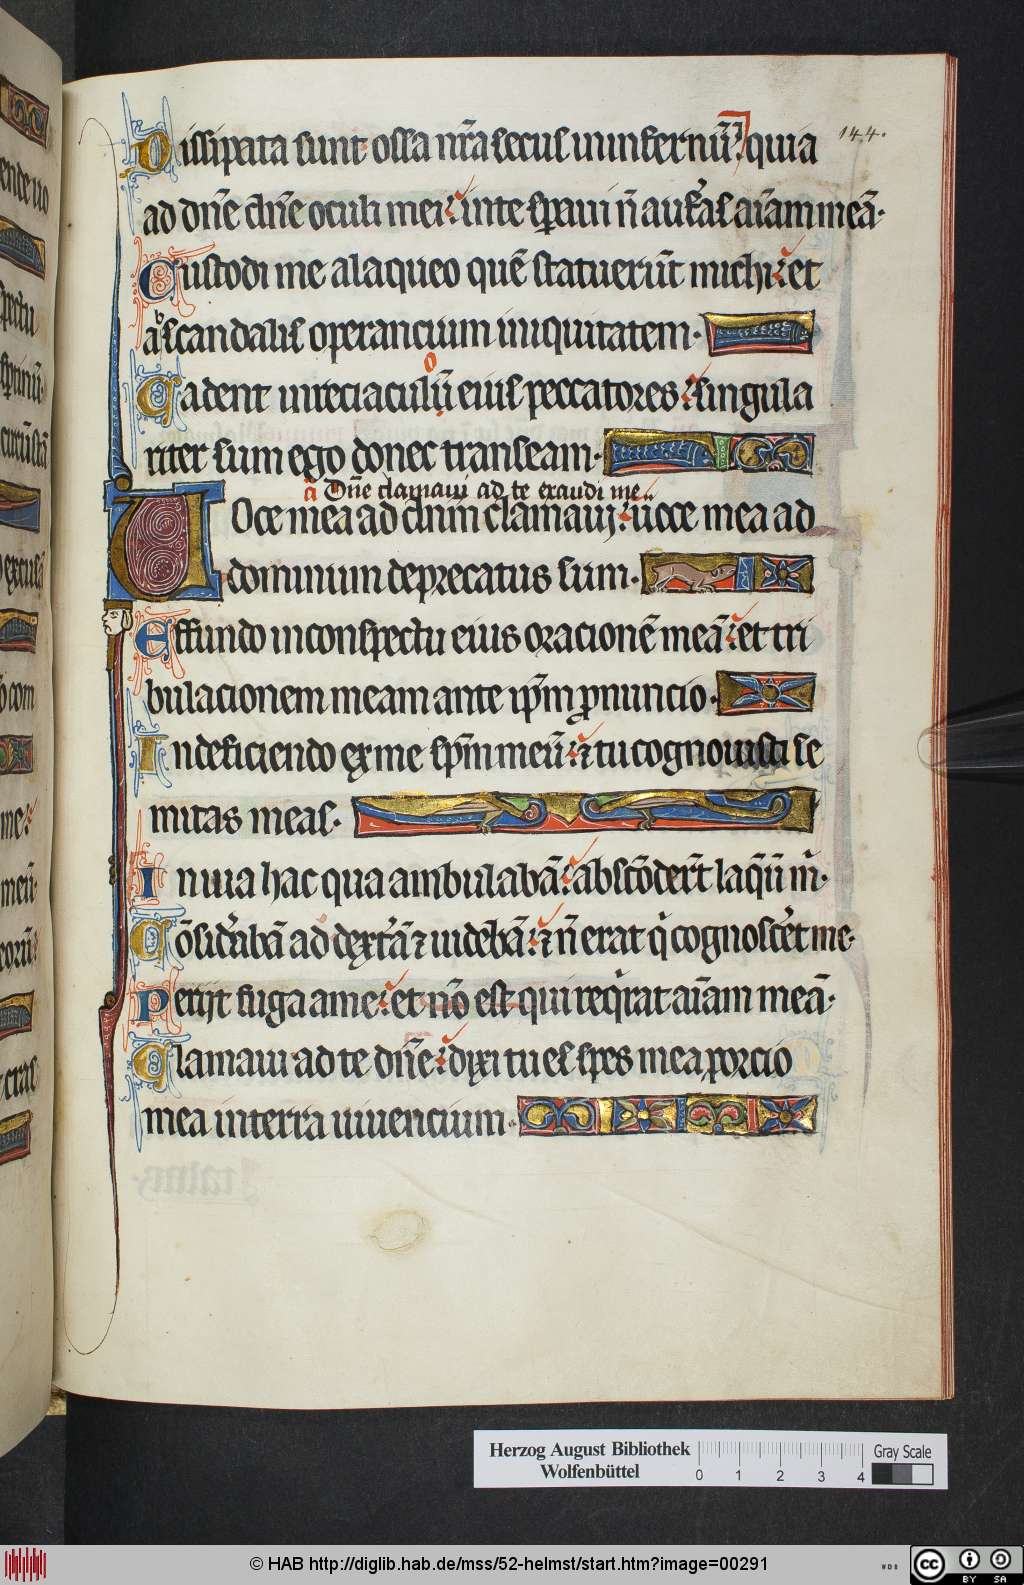 144.
Dissipata sunt ossa nr̄a secus u infernū. quia
ad dn̄e dn̄e oculi mei: in te sꝑaui n̄ aufͣas aīam meā.
Custodi me a laqueo quē statuerūt michi: et
abscandalis operancium iniquitatem.
Cadent in reciaculo eius peccatores: singula
riter sum ego donec transeam.
a Dn̄e clamaui ad te exaudi me..
Uoce mea ad dn̄m clamauj: uoce mea ad
dominum deprecatus sum.
Effundo in conspectu eius oracionē meā: et tri
bulacionem meam ante ip̄m ꝓnuncio.
In deficiendo ex me sp̄m meū: ⁊ tu cognouisti se
mitas meas.
In uia hac qua ambulabā: abscōder̄t laq̄ū m̄.
Cōsidͣabā ad dextͣā ⁊ uidebā: ⁊ n̄ erat q̄ cognoscͣet me.
Perijt fuga a me: et nō est qui reqͥrat aīam meā.
Clamaui ad te dn̄e: dixi tu es spes mea porcio
mea in terra uiuencium.
ende uo
spectu
me:
meū.
eorū:
Herzog August Bibliothek
Wolfenbüttel
0 1 2 3 4
Gray Scale
© HAB http://diglib.hab.de/mss/52-helmst/start.htm?image=00291
WDB
cc BY SA